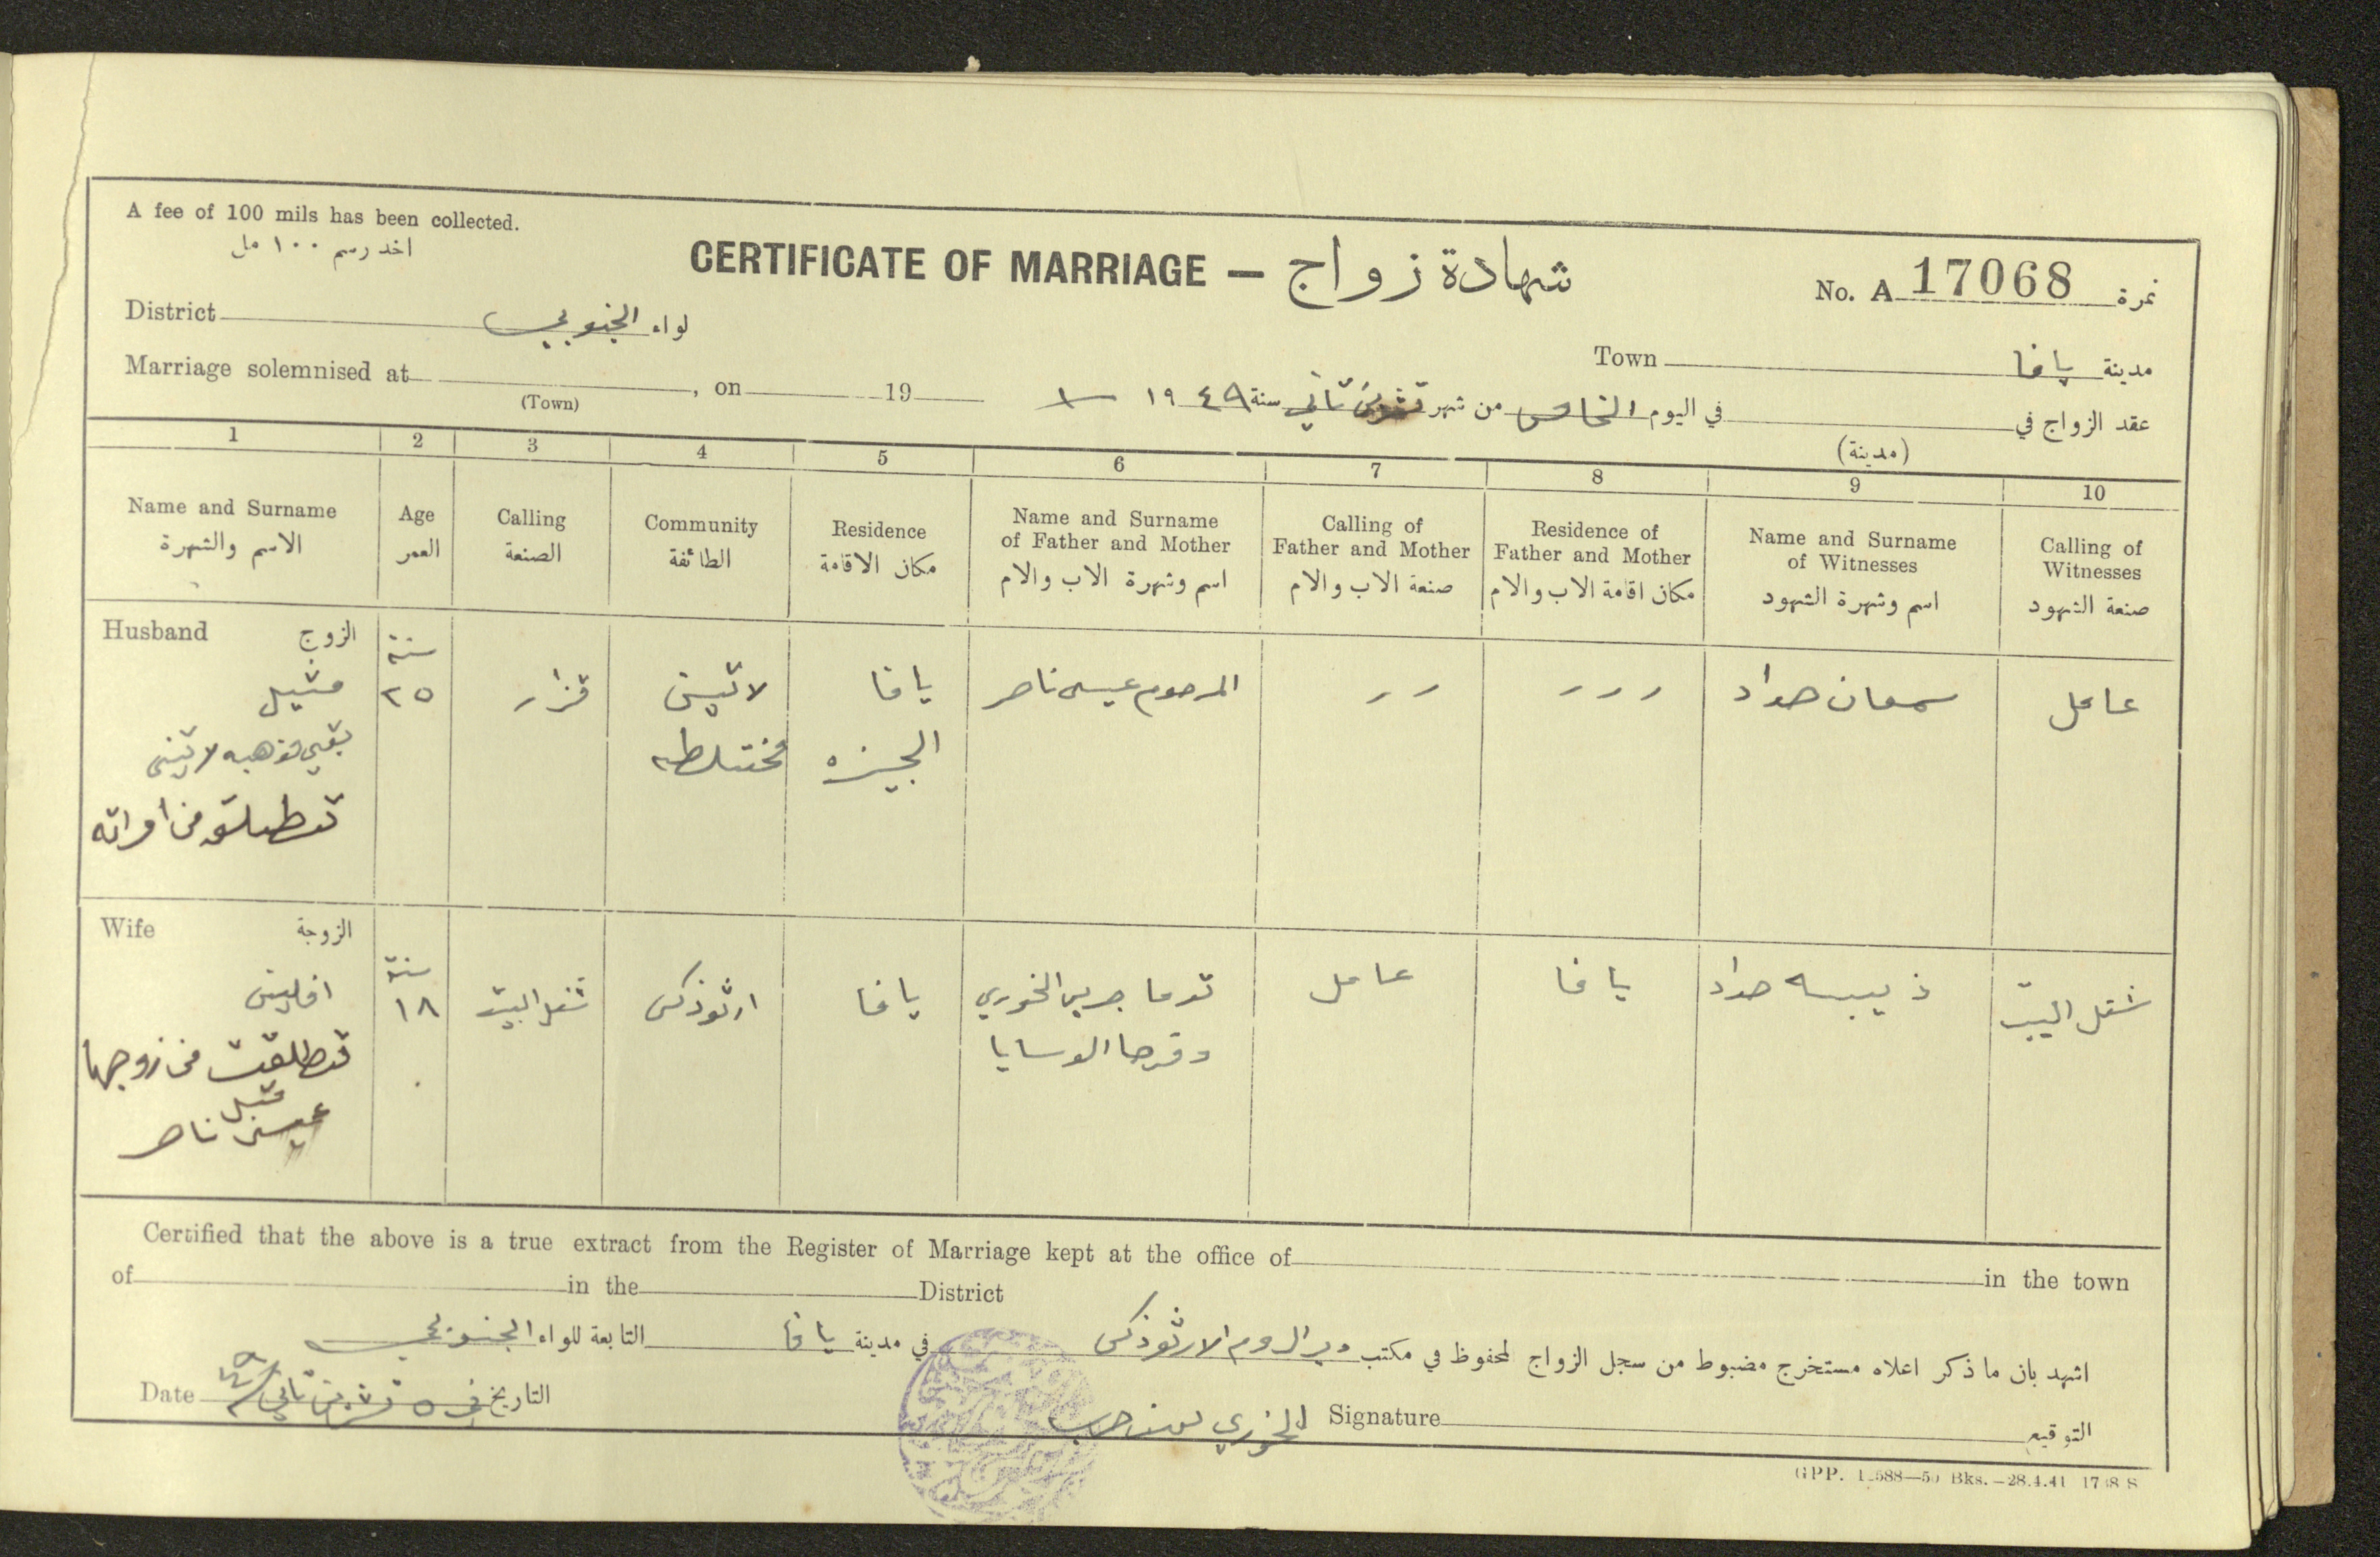 A fee of 100 mils has been collected.
اخذ رسم ١٠٠ مل
CERTIFICATE OF MARRIAGE — شهادة زواج
No. A 17068 نمرة
District لواء الجنوبي
Town مدينة يافا
Marriage solemnised at , on 19
(Town)
عقد الزواج في في اليوم الخامس من شهر تشرين تاني سنة ١٩٤٩
(مدينة)
1 2 3 4 5 6 7 8 9 10
Name and Surname
الاسم والشهرة
Age
العمر
Calling
الصنعة
Community
الطائفة
Residence
مكان الاقامة
Name and Surname
of Father and Mother
اسم وشهرة الاب والام
Calling of
Father and Mother
صنعة الاب والام
Residence of
Father and Mother
مكان اقامة الاب والام
Name and Surname
of Witnesses
اسم وشهرة الشهود
Calling of
Witnesses
صنعة الشهود
Husband الزوج
متيل
بقي مذهبه لاتيني
من امراته
سنة
٢٥
قزاز
لاتين
مختلطه
يافا
الجبزه
المرحوم عيسى ناصر
سمعان حداد
عامل
Wife الزوجة
افلين
تطلقت من زوجها
متيل
عيسى ناصر
سنة
١٨
شغل البيت
ارثوذكس
يافا
توما جريس الخوري
عامل
يافا
ذيبه حداد
شغل البيت
Certified that the above is a true extract from the Register of Marriage kept at the office of in the town
of in the District
اشهد بان ما ذكر اعلاه مستخرج مضبوط من سجل الزواج المحفوظ في مكتب دير الروم الارثوذكس في مدينة يافا التابعة للواء الجنوبي
Date في ٥ تشرين تاني ٤٩ التاريخ
الخوري Signature التوقيع
GPP. 588—50 Bks.—28.4.41